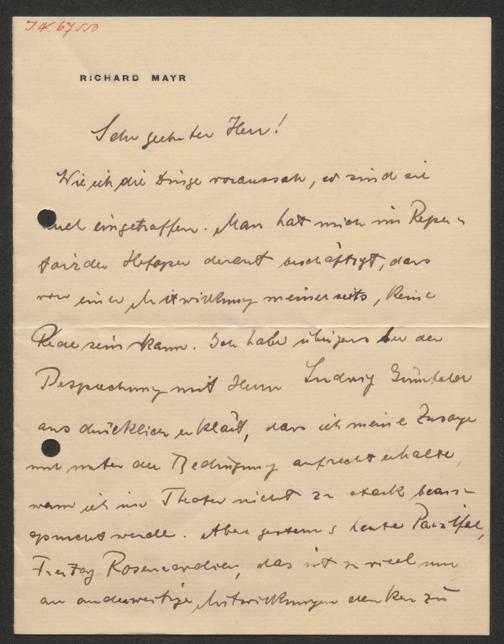 I.N. 67550
RICHARD MAYR
Sehr geehrter Herr!
Wie ich die Dinge voraussah, so sind sie
auch eingetroffen. Man hat mich im Reper-
toir der Hofoper derart beschäftigt, dass
von einer Mitwirkung meinerseits, keine
Rede sein kann. Ich habe übrigens bei der
Besprechung mit Herrn Ludwig
ausdrücklich erklärt, dass ich meine Zusage
nur unter der Bedingung aufrecht erhalte,
wenn ich im Theater nicht zu stark bean-
sprucht werde. Aber gestern & heute Parsifal,
Freitag Rosencavalier, das ist zu viel um
an anderweitige Mitwirkungen denken zu